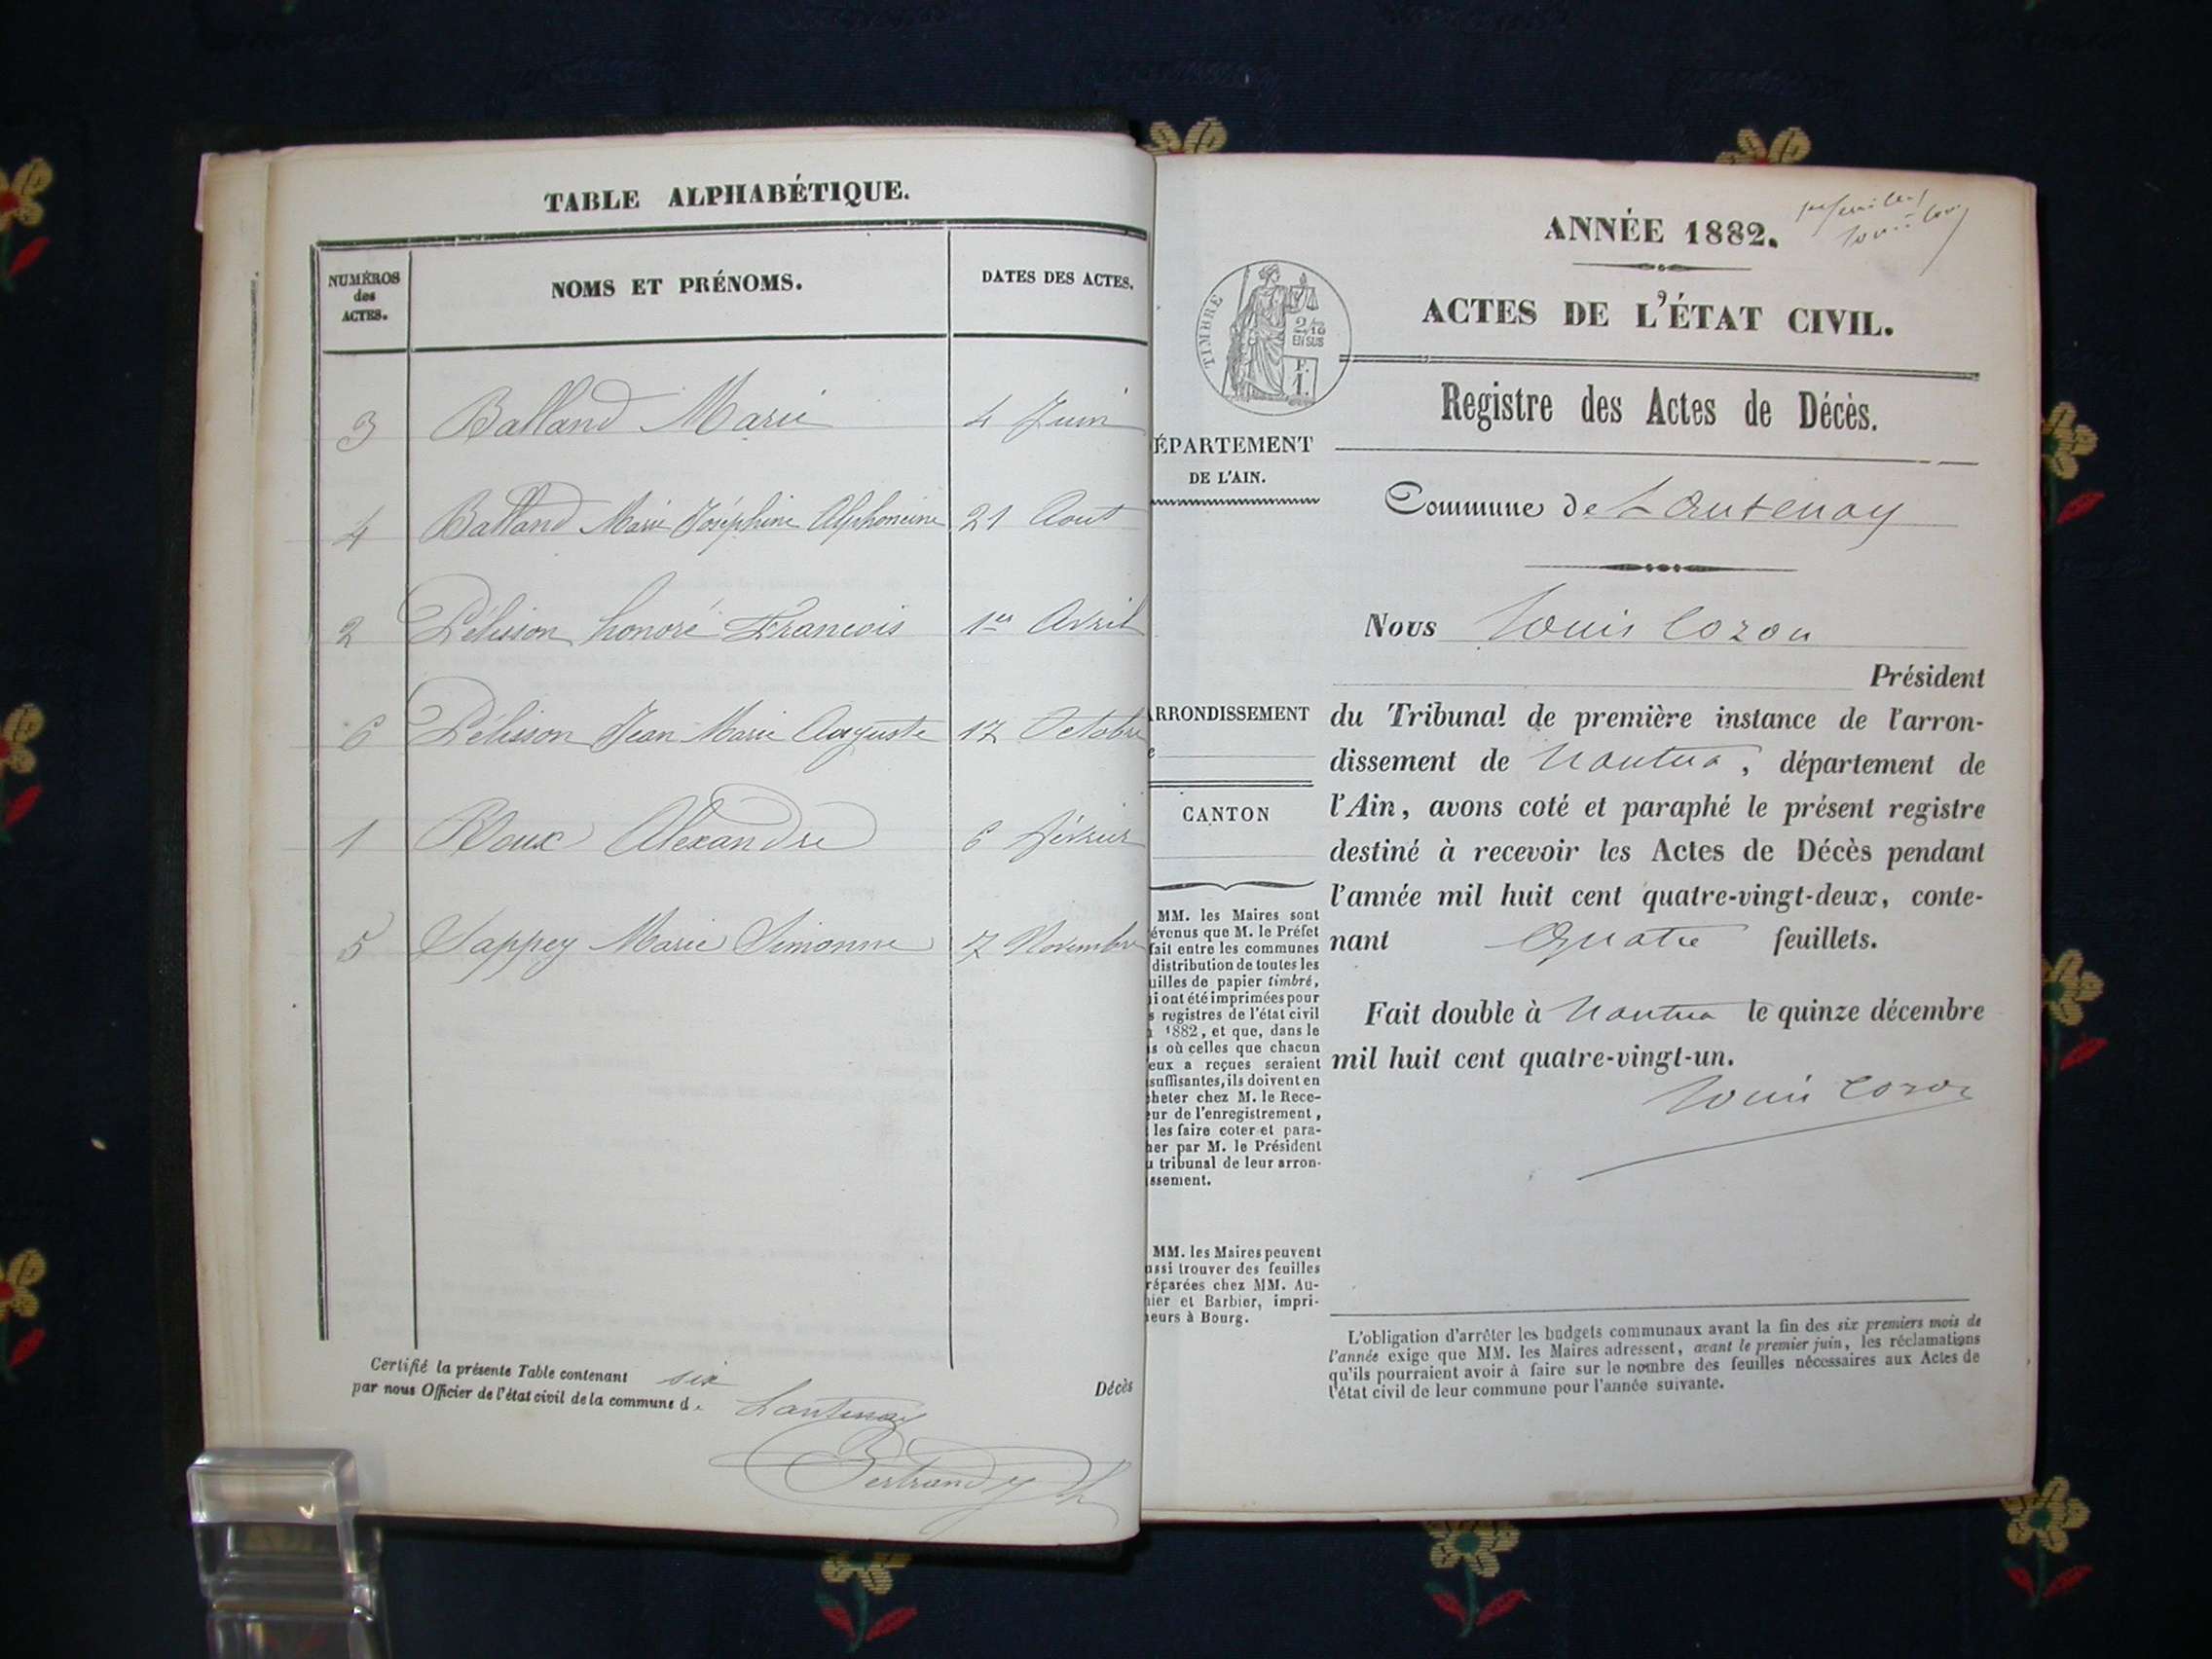 TABLE ALPHABÉTIQUE.
NUMÉROS
des
ACTES.
NOMS ET PRÉNOMS.
DATES DES ACTES.
3 Balland Marie 4 Juin
4 Balland Marie Joséphine Alphonsine 21 Aout
2 Pélisson honoré Francois 1er Avril
6 Pélisson Jean Marie Auguste 17 Octobre
1 Roux Alexandre 6 Février
5 Sappey Marie Simonne 7 Novembre
Certifié la présente Table contenant six Décès
par nous Officier de l'état civil de la commune d. Lantenay
Bertrand
ANNÉE 1882.
ACTES DE L'ÉTAT CIVIL.
TIMBRE
2/10
EN SUS
F.
1.
Registre des Actes de Décès.
ÉPARTEMENT
DE L'AIN.
Commune de Lantenay
Nous Louis Cozon
Président
RRONDISSEMENT
du Tribunal de première instance de l'arron-
dissement de Nantua, département de
l'Ain, avons coté et paraphé le présent registre
destiné à recevoir les Actes de Décès pendant
l'année mil huit cent quatre-vingt-deux, conte-
nant Quatre feuillets.
Fait double à Nantua le quinze décembre
mil huit cent quatre-vingt-un.
Louis Cozon
CANTON
MM. les Maires sont
évenus que M. le Préfet
fait entre les communes
distribution de toutes les
uilles de papier timbré,
i ont été imprimées pour
s registres de l'état civil
1882, et que, dans le
s où celles que chacun
eux a reçues seraient
suffisantes, ils doivent en
heter chez M. le Rece-
ur de l'enregistrement,
les faire coter et para-
er par M. le Président
u tribunal de leur arron-
ssement.
MM. les Maires peuvent
ussi trouver des feuilles
réparées chez MM. Au-
ier et Barbier, impri-
eurs à Bourg.
L'obligation d'arrêter les budgets communaux avant la fin des six premiers mois de
l'année exige que MM. les Maires adressent, avant le premier juin, les réclamations
qu'ils pourraient avoir à faire sur le nombre des feuilles nécessaires aux Actes de
l'état civil de leur commune pour l'année suivante.